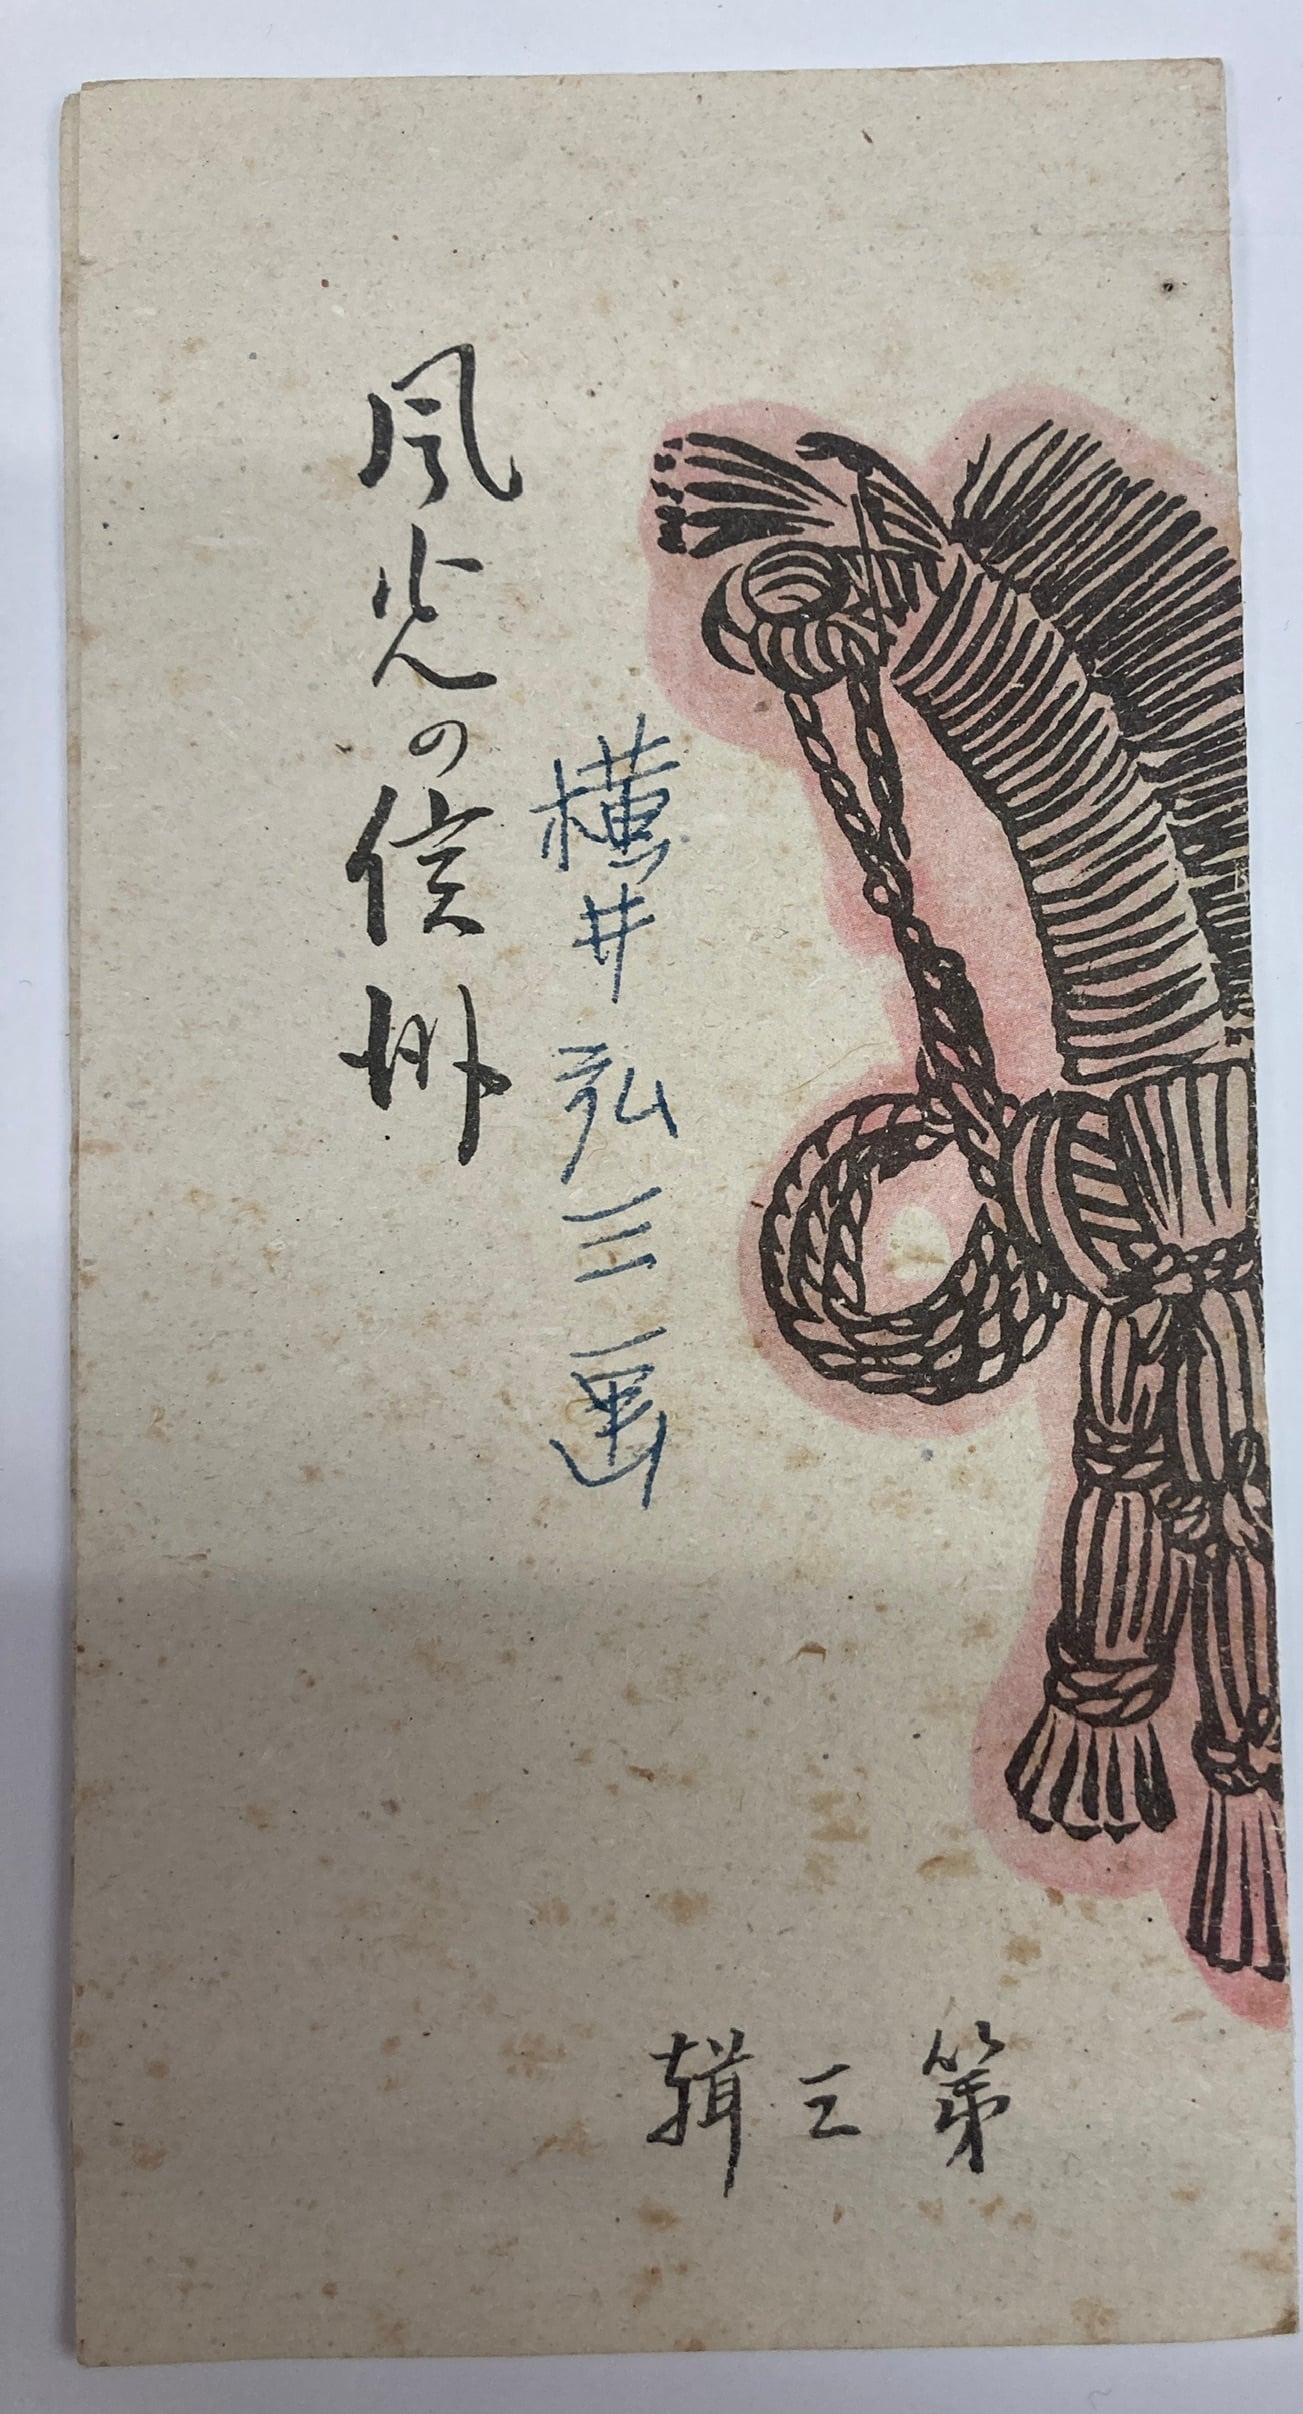 横井弘三画
風光の信州
第三輯